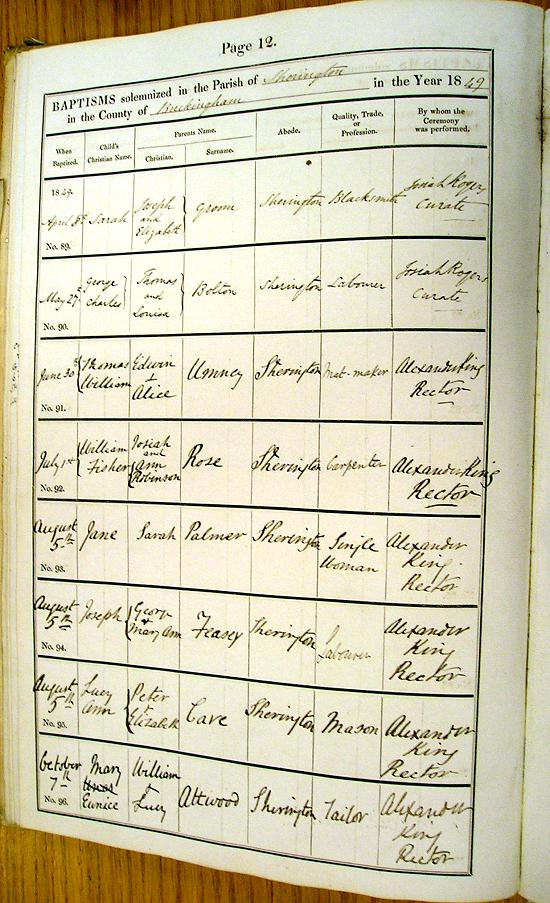 Page 12.
BAPTISMS solemnized in the Parish of Sherington
in the County of Buckingham in the Year 1849
When Baptized.
Child's Christian Name.
Parents Name.
Christian.
Surname.
Abode.
Quality, Trade, or Profession.
By whom the Ceremony was performed.
1849.
April 8th Sarah Joseph and Elizabeth Groom Sherington Blacksmith Josiah Rogers Curate
No. 89.
May 27th George Charles Thomas and Louisa Bolton Sherington Labourer Josiah Rogers Curate
No. 90.
June 30th Thomas William Edwin + Alice Umney Sherington Mat-maker Alexander King Rector
No. 91.
July 1st William Fisher Josiah and Ann Robinson Rose Sherington Carpenter Alexander King Rector
No. 92.
August 5th Jane Sarah Palmer Sherington Single Woman Alexander King Rector
No. 93.
August 5th Joseph George + Mary Ann Feasey Sherington Labourer Alexander King Rector
No. 94.
August 5th Lucy Ann Peter + Elizabeth Cave Sherington Mason Alexander King Rector
No. 95.
October 7th Mary Eunice William + Lucy Attwood Sherington Tailor Alexander King Rector
No. 96.